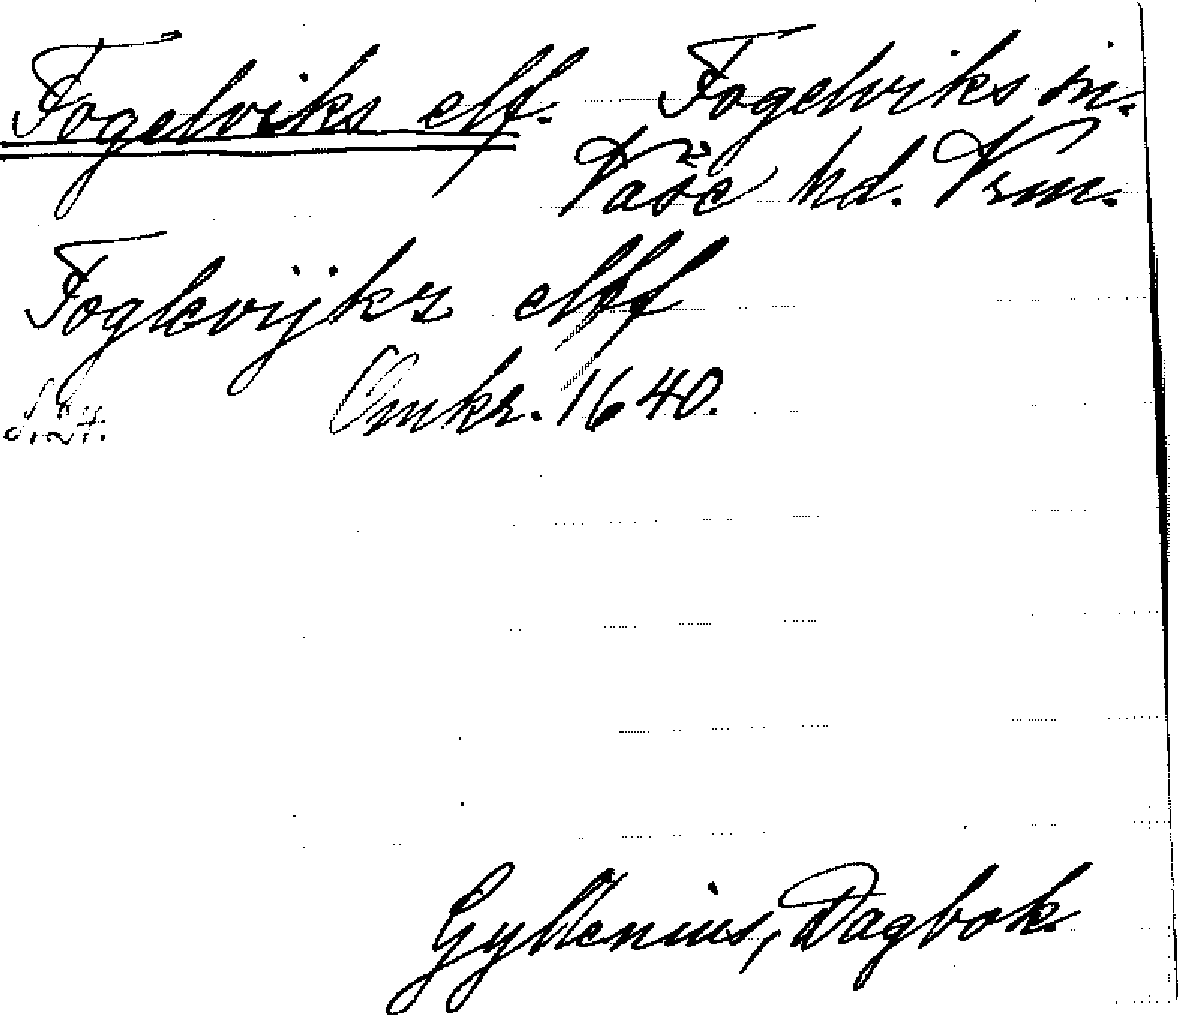 Fogelviks elf. Fogelviks sn.
Väse hd. Vrm.
Foglevijks elff
Omkr. 1640.
s. 24.
Gyllenius, Dagbok.